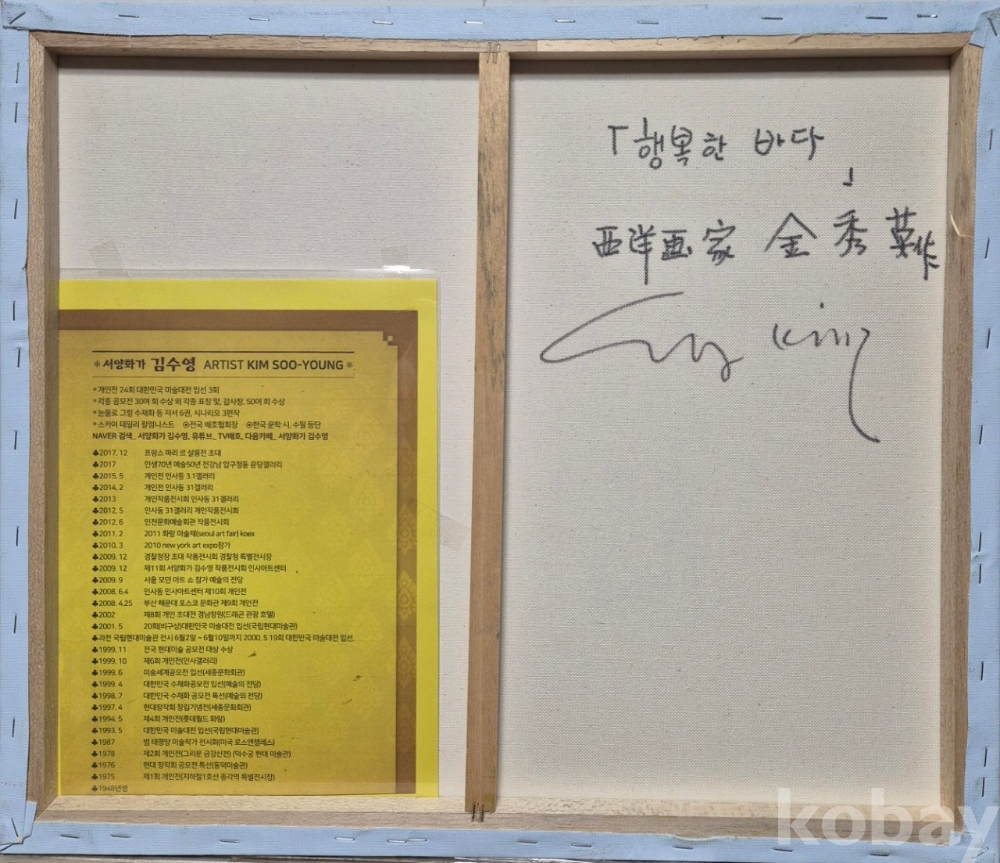 「행복한 바다」
西洋画家 金秀英作
Kim
서양화가 김수영 ARTIST KIM SOO-YOUNG
*개인전 24회 대한민국 미술대전 입선 3회
*각종 공모전 30여 회 수상 외 각종 표창 및, 감사장, 50여 회 수상
*눈물로 그림 수채화 등 저서 6권, 시나리오 3편작
*스카이 데일리 칼럼니스트 ⊙전국 배호협회장 ⊙한국 문학 시, 수필 등단
NAVER 검색_ 서양화가 김수영, 유튜브_ TV배호, 다음카페_ 서양화가 김수영
♣2017. 12 프랑스 파리 르 살롱전 초대
♣2017 인생70년 예술50년 전강남 압구정동 윤당갤러리
♣2015. 5 개인전 인사동 3.1갤러리
♣2014. 2 개인전 인사동 31갤러리
♣2013 개인작품전시회 인사동 31갤러리
♣2012. 5 인사동 31갤러리 개인작품전시회
♣2012. 6 인천문화예술회관 작품전시회
♣2011. 2 2011 화랑 미술제(seoul art fair) koex
♣2010. 3 2010 new york art expo참가
♣2009. 12 경찰청장 초대 작품전시회 경찰청 특별전시장
♣2009. 12 제11회 서양화가 김수영 작품전시회 인사아트센터
♣2009. 9 서울 모던 아트 쇼 참가 예술의 전당
♣2008. 6.4 인사동 인사아트센터 제10회 개인전
♣2008. 4.25 부산 해운대 포스코 문화관 제9회 개인전
♣2002 제8회 개인 초대전 경남창원(드래곤 관광 호텔)
♣2001. 5 20회(비구상)대한민국 미술대전 입선(국립현대미술관)
♣과천 국립현대미술관 전시 6월2일 ~ 6월10일까지 2000. 5 19회 대한민국 미술대전 입선.
♣1999. 11 전국 현대미술 공모전 대상 수상
♣1999. 10 제6회 개인전(인사갤러리)
♣1999. 6 미술세계공모전 입선(세종문화회관)
♣1999. 4 대한민국 수채화공모전 입선(예술의 전당)
♣1998. 7 대한민국 수채화 공모전 특선(예술의 전당)
♣1997. 4 현대창작회 창립기념전(세종문화회관)
♣1994. 5 제4회 개인전(롯데월드 화랑)
♣1993. 5 대한민국 미술대전 입선(국립현대미술관)
♣1987 범 태평양 미술작가 전시회(미국 로스앤젤레스)
♣1978 제2회 개인전(그리운 금강산전) (덕수궁 현대 미술관)
♣1976 현대 창작회 공모전 특선(동덕미술관)
♣1975 제1회 개인전(지하철1호선 종각역 특별전시장)
♣1948년생
kobay